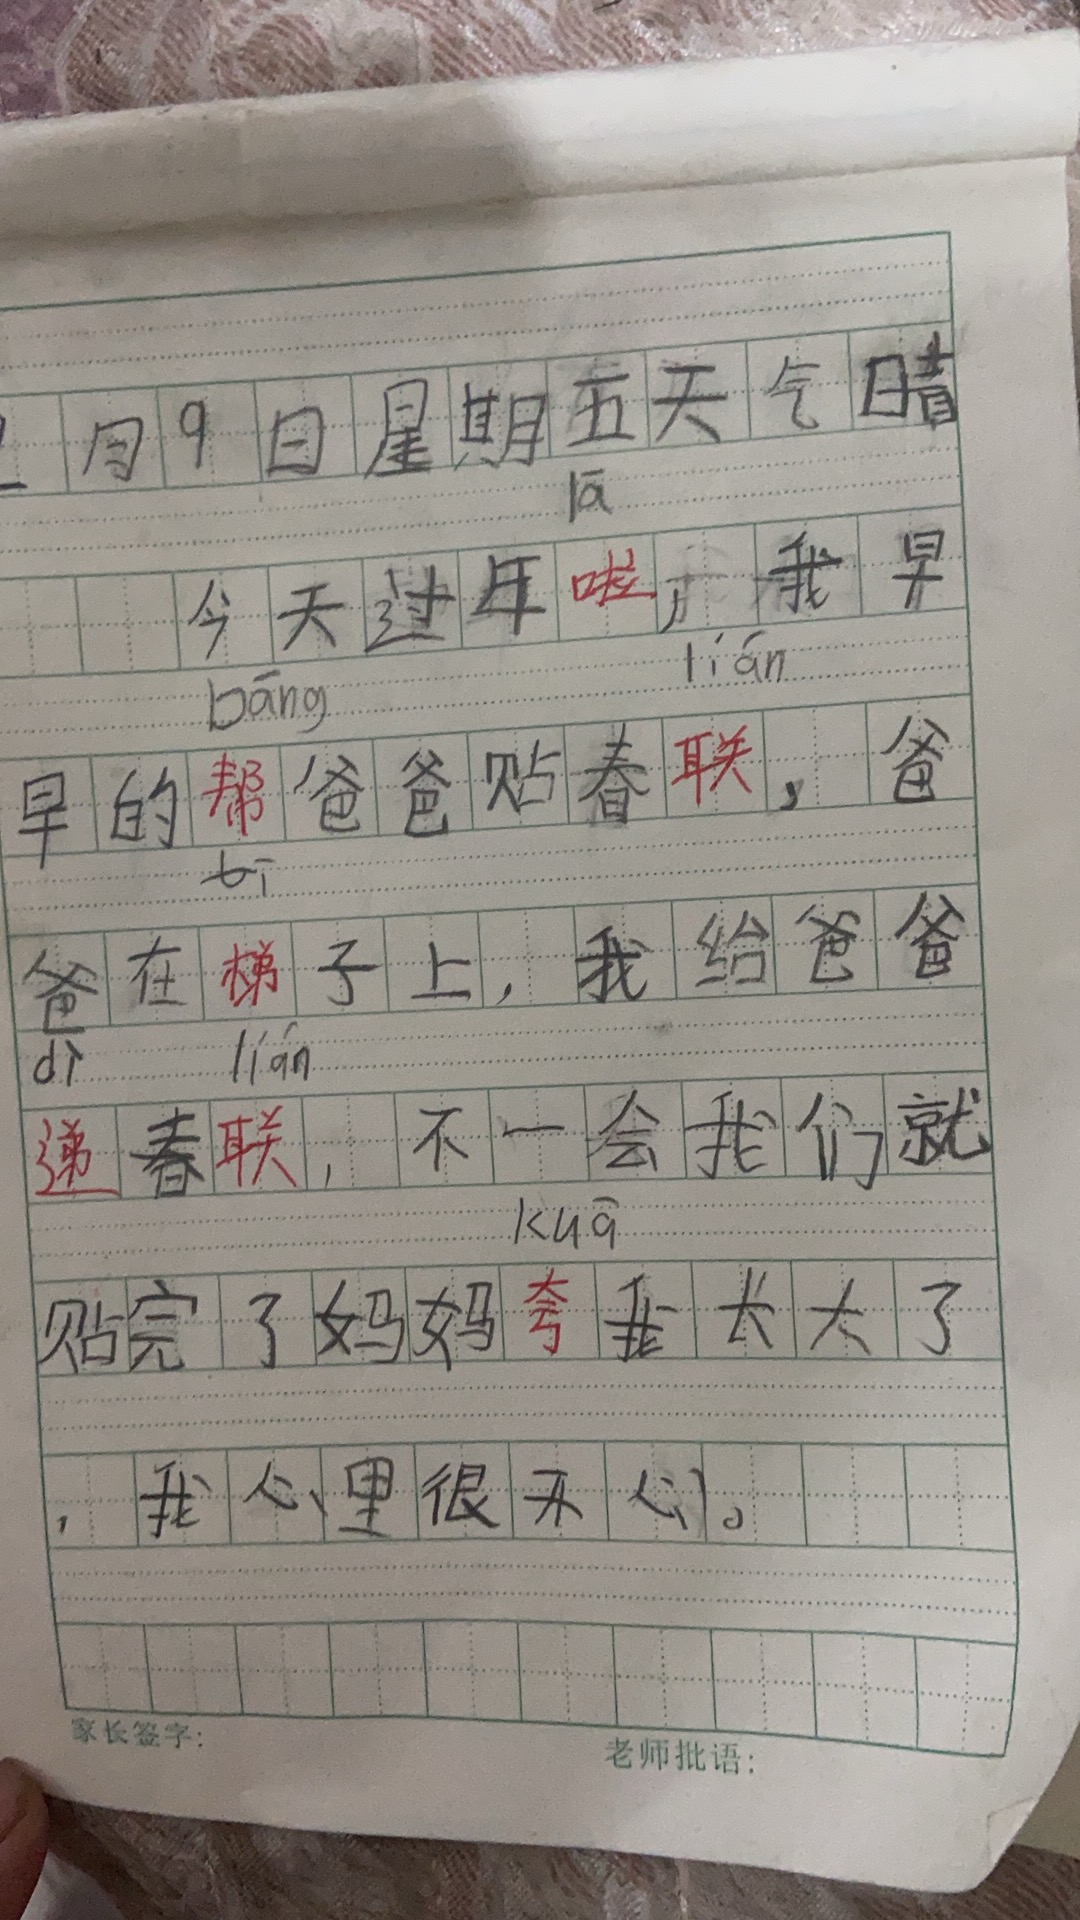 月9日星期五天气晴
lā
今天过年啦，我早
bāng lián
早的帮爸爸贴春联，爸
爸在梯子上，我给爸爸
dì lián
递春联，不一会我们就
kuā
贴完了妈妈夸我长大了
，我心里很开心。
家长签字：
老师批语：